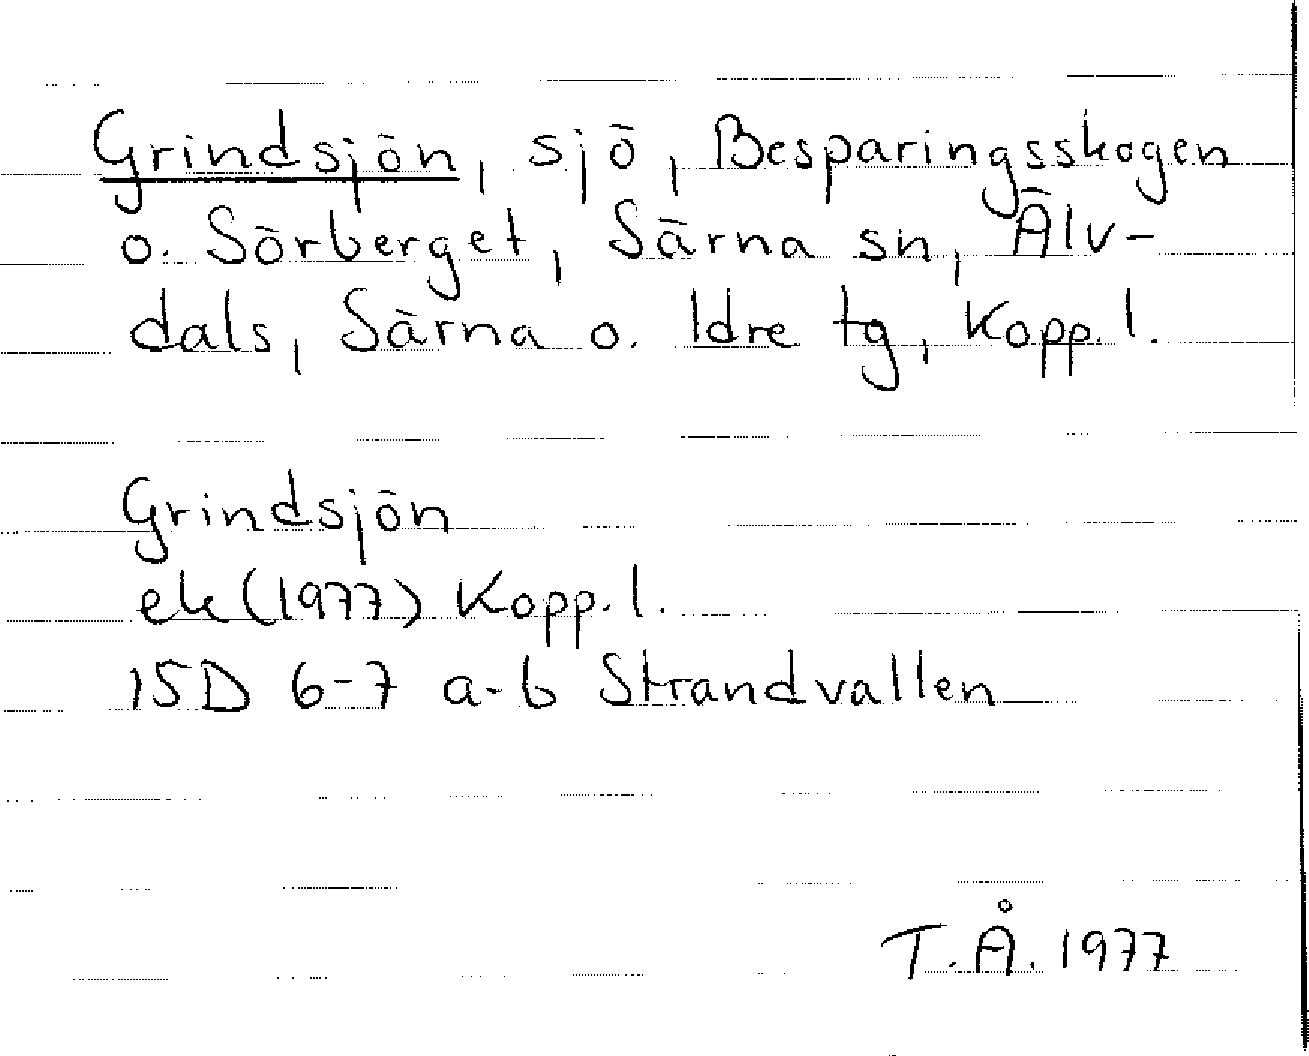 Grindsjön, sjö, Besparingsskogen
o. Sörberget, Särna sn, Älv-
dals, Särna o. Idre tg, Kopp. l.
Grindsjön
ek (1977) Kopp. l.
15D 6-7 a-b Strandvallen
T.Å. 1977